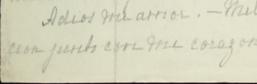 Adios mi amor. — Mil
con junto con mi corazon